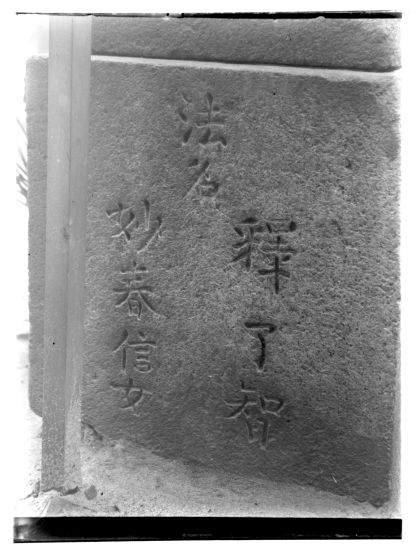 法名
釋了智
妙春信女